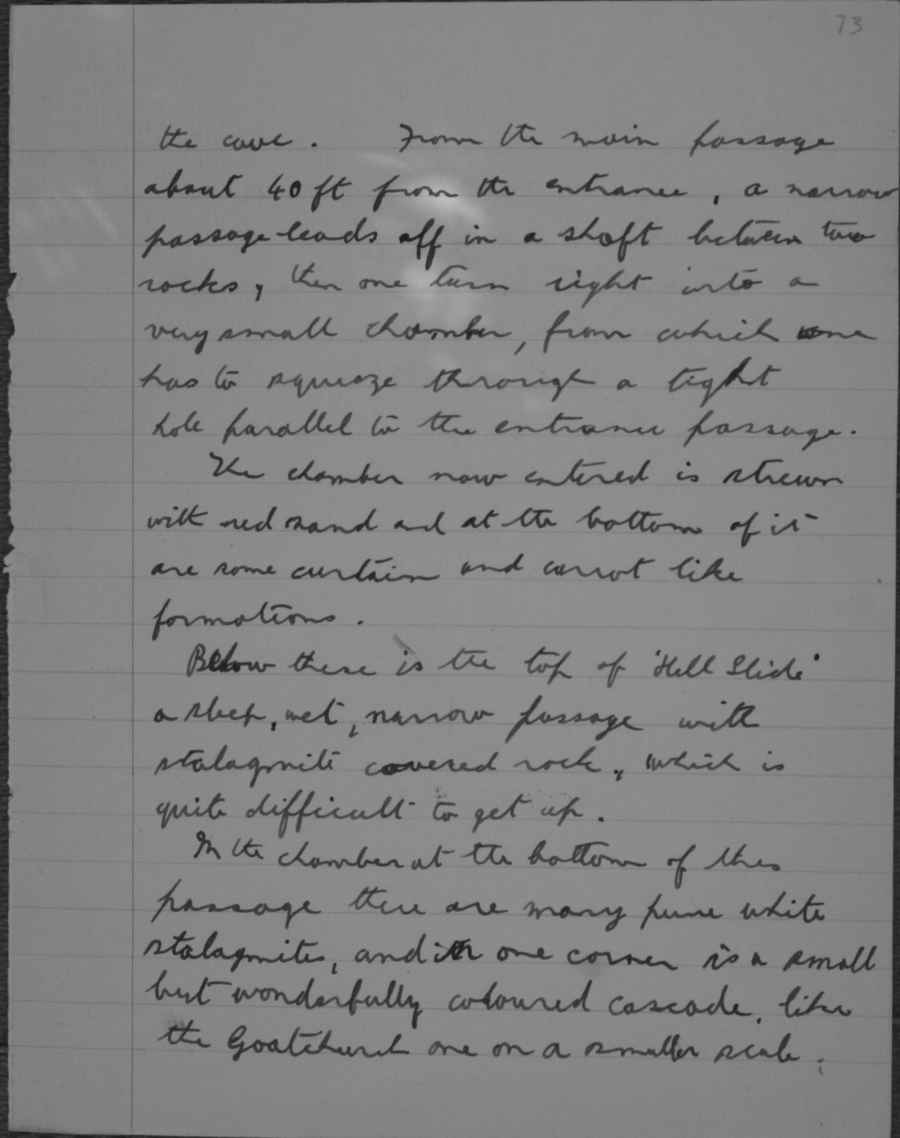 73
the cave. From the main passage
about 40 ft from the entrance, a narrow
passage leads off in a shaft between two
rocks, then one turn right into a
very small chamber, from which one
has to squeeze through a tight
hole parallel to the entrance passage.
The chamber now entered is strewn
with red sand and at the bottom of it
are some curtain and carrot like
formations.
Below these is the top of 'Hell Slide'
a steep, wet, narrow passage with
stalagmite covered rock, which is
quite difficult to get up.
In the chamber at the bottom of this
passage there are many pure white
stalagmites, and in one corner is a small
but wonderfully coloured cascade, like
the Goatchurch one on a smaller scale.